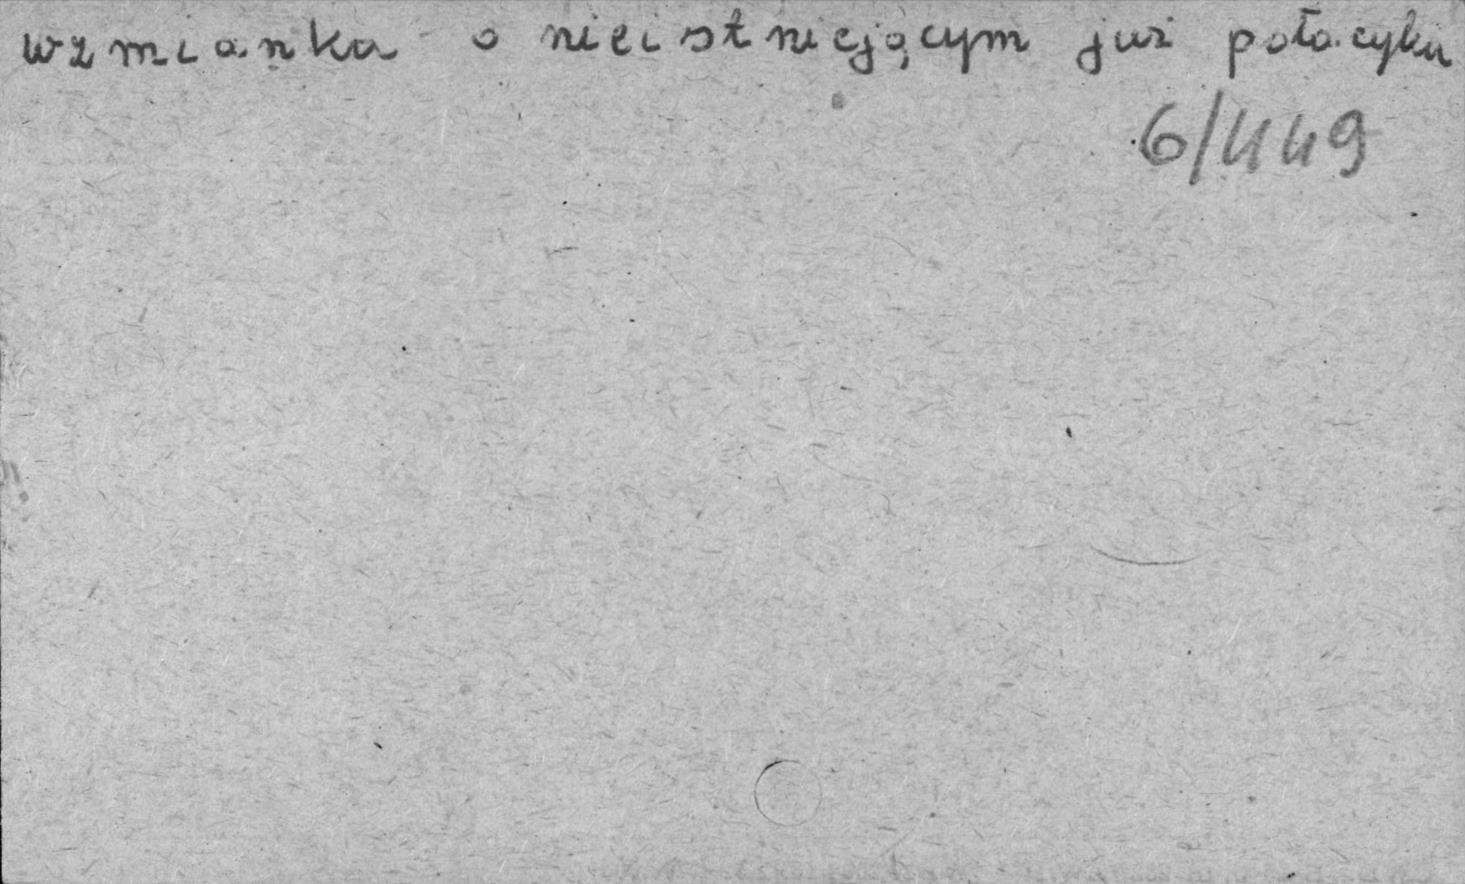 wzmianka o nieistniejącym już pałacyku
6/449